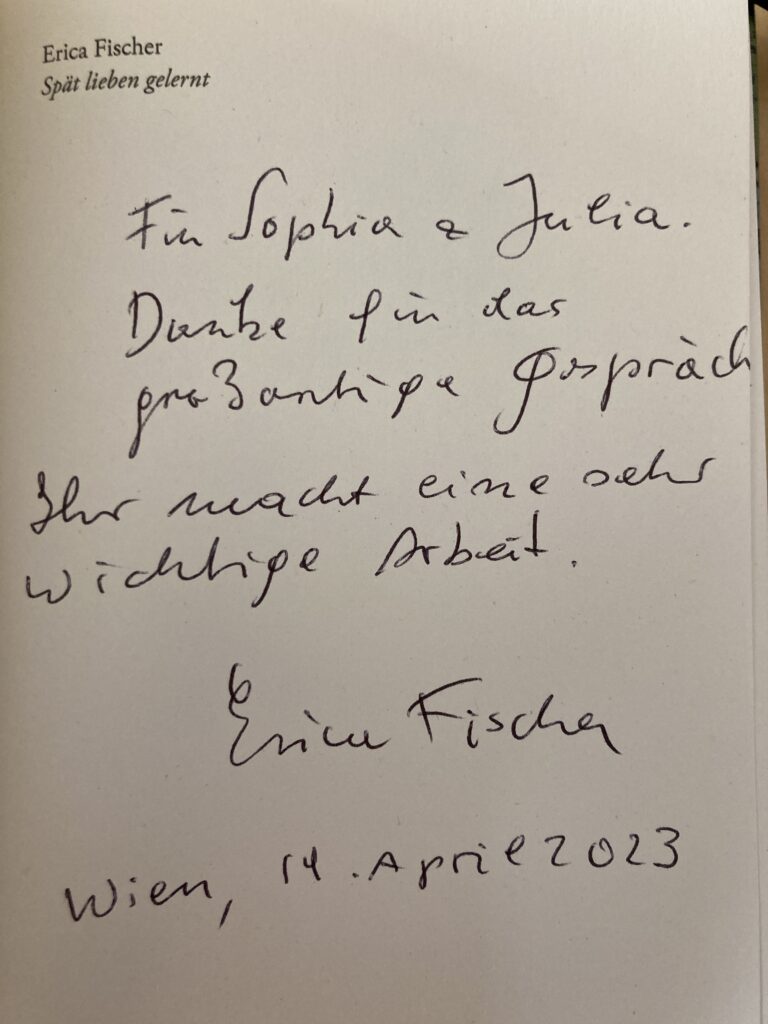 Erica Fischer
Spät lieben gelernt
Für Sophia & Julia.
Danke für das
großartige Gespräch
Ihr macht eine sehr
wichtige Arbeit.
Erica Fischer
Wien, 14. April 2023